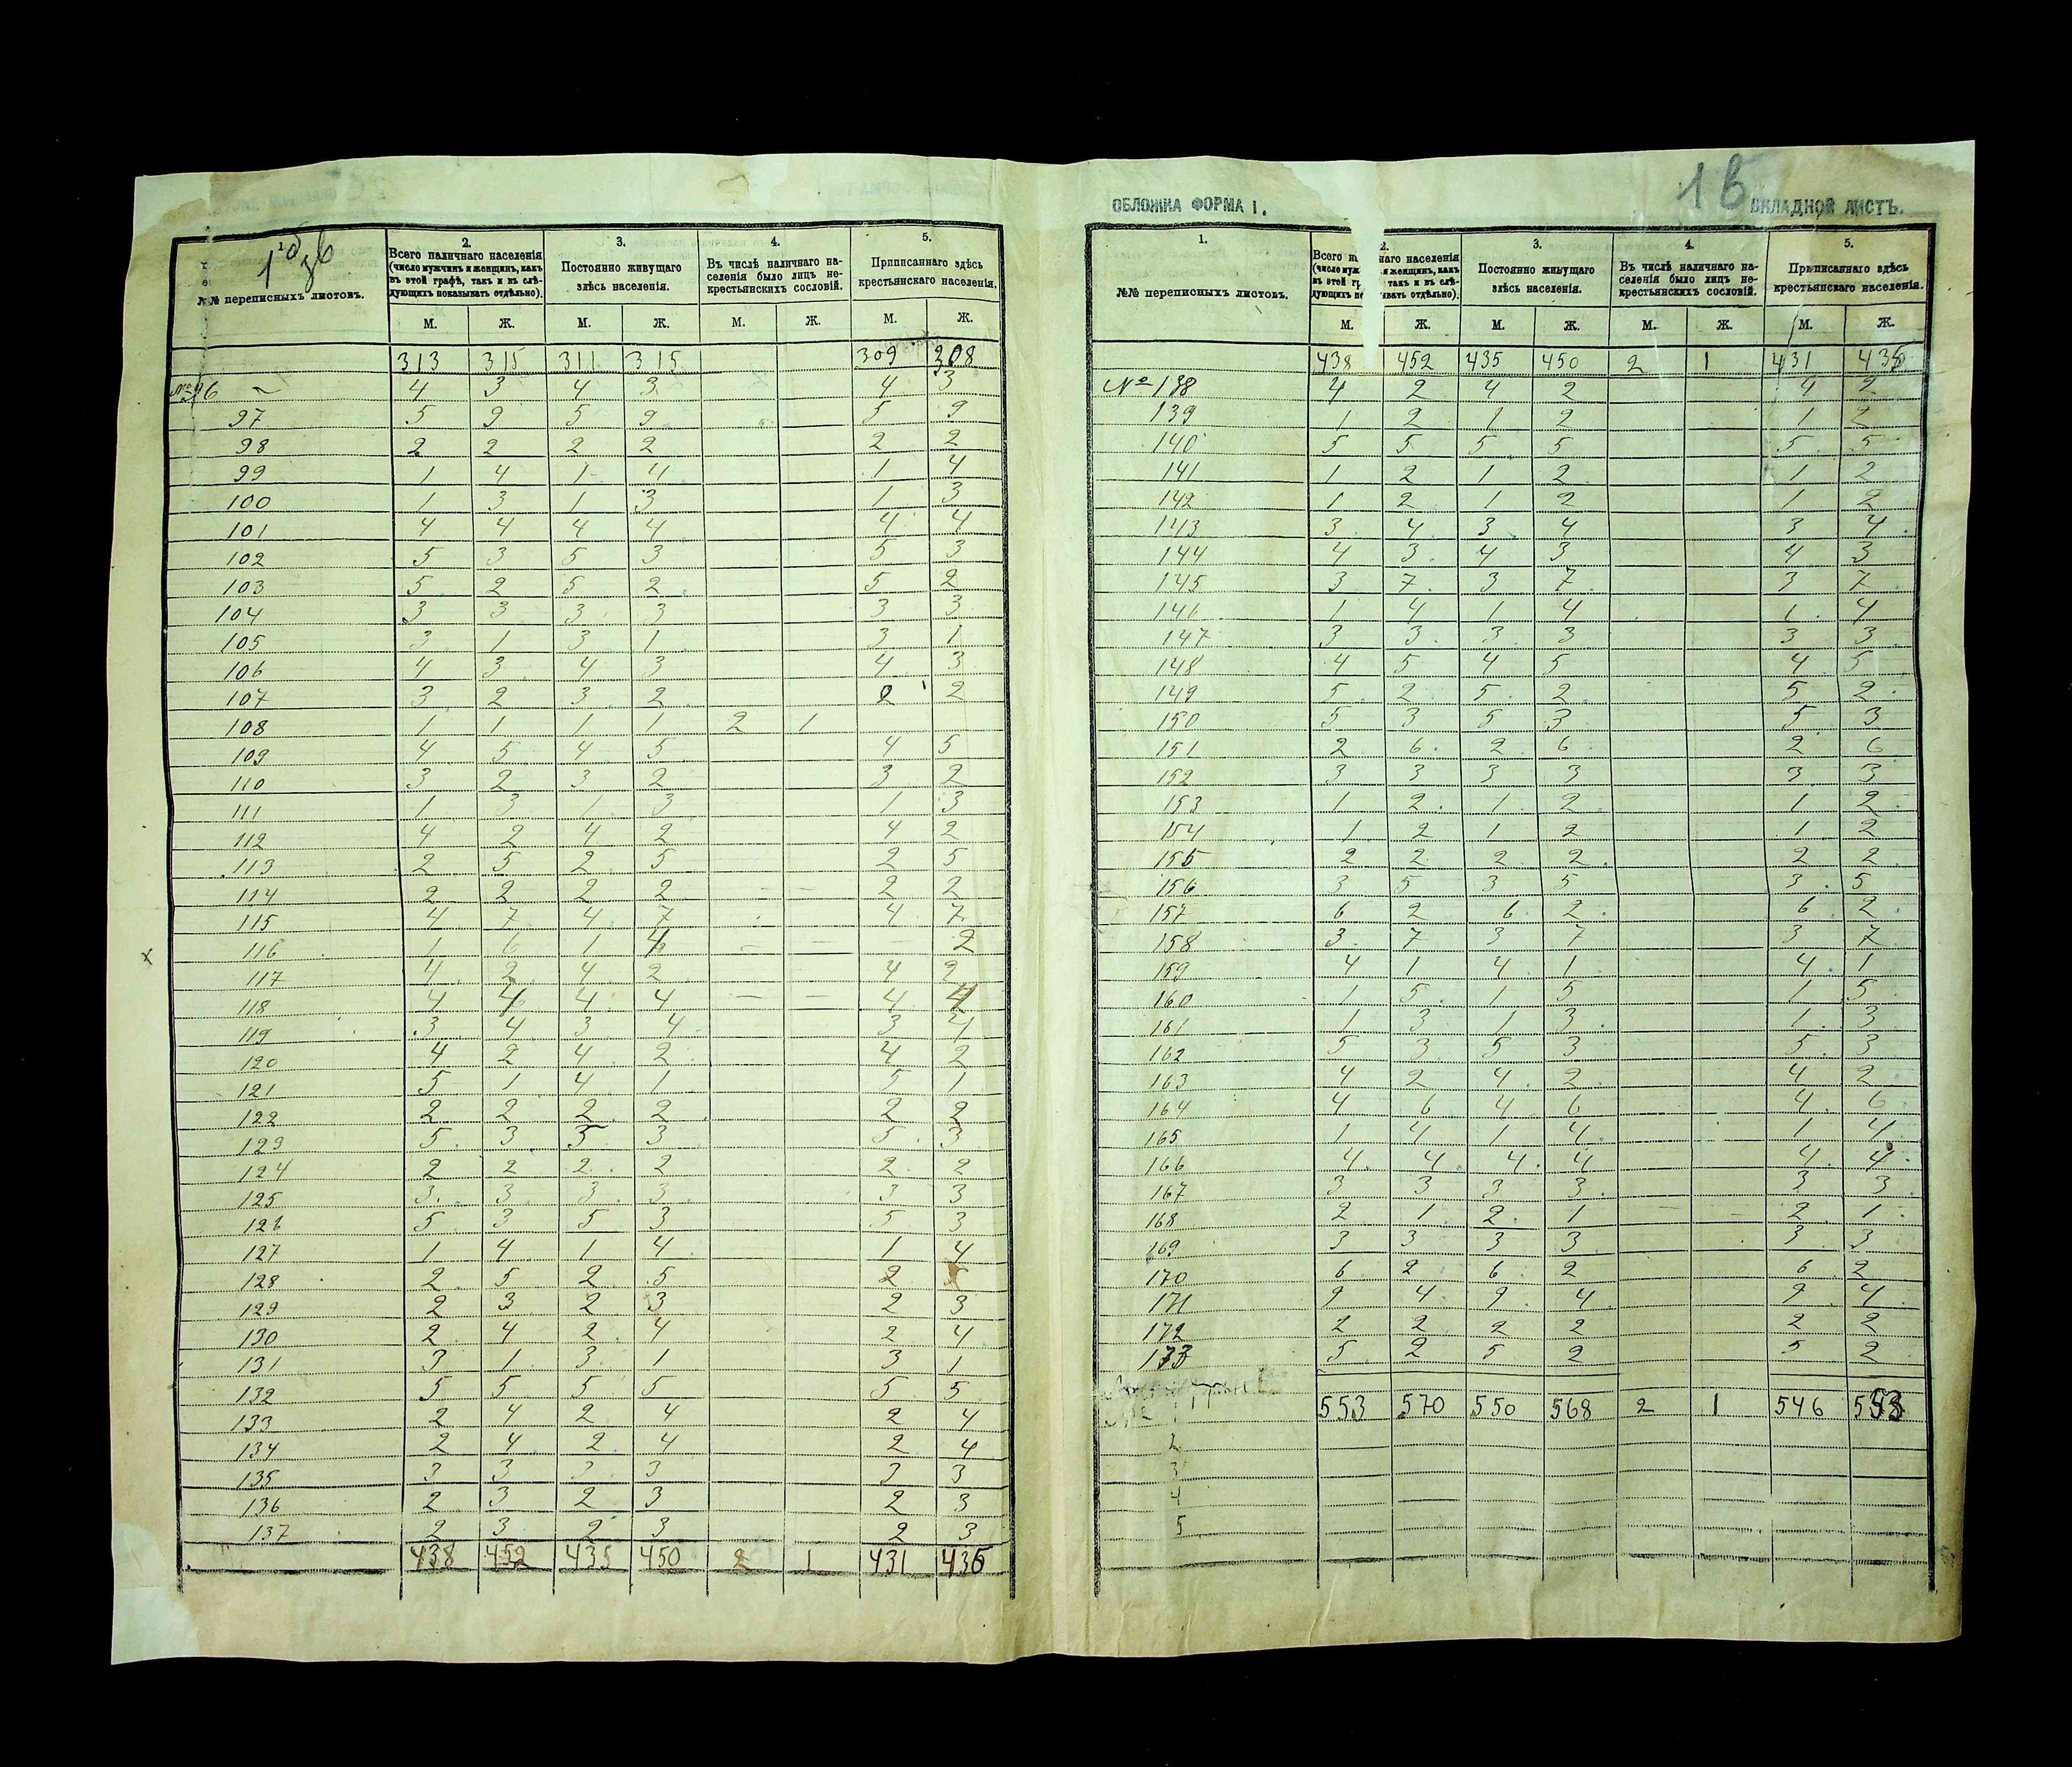 1 б
зв
1. 2. 3. 4. 5.
№№ переписныхъ листовъ. Всего наличнаго населенія (число мужчинъ и женщинъ, какъ въ этой графѣ, такъ и въ слѣдующихъ показывать отдѣльно). Постоянно живущаго здѣсь населенія. Въ числѣ наличнаго населенія было лицъ некрестьянскихъ сословій. Приписаннаго здѣсь крестьянскаго населенія.
М. Ж. М. Ж. М. Ж. М. Ж.
313 315 311 315 309 308
№ 96 4 3 4 3 4 3
97 5 9 5 9 5 9
98 2 2 2 2 2 2
99 1 4 1 4 1 4
100 1 3 1 3 1 3
101 4 4 4 4 4 4
102 5 3 5 3 5 3
103 5 2 5 2 5 2
104 3 3 3 3 3 3
105 3 1 3 1 3 1
106 4 3 4 3 4 3
107 3 2 3 2 2 2
108 1 1 1 1 2 1
109 4 5 4 5 4 5
110 3 2 3 2 3 2
111 1 3 1 3 1 3
112 4 2 4 2 4 2
113 2 5 2 5 2 5
114 2 2 2 2 — — 2 2
115 4 7 4 7 4 7
116 1 6 1 4 — — — 2
117 4 2 4 2 4 2
118 4 4 4 4 — — 4 4
119 3 4 3 4 3 4
120 4 2 4 2 4 2
121 5 1 4 1 5 1
122 2 2 2 2 2 2
123 5 3 5 3 5 3
124 2 2 2 2 2 2
125 3 3 3 3 3 3
126 5 3 5 3 5 3
127 1 4 1 4 1 4
128 2 5 2 5 2 5
129 2 3 2 3 2 3
130 2 4 2 4 2 4
131 3 1 3 1 3 1
132 5 5 5 5 5 5
133 2 4 2 4 2 4
134 2 4 2 4 2 4
135 3 3 3 3 3 3
136 2 3 2 3 2 3
137 2 3 2 3 2 3
438 452 435 450 2 1 431 435
1 в
ОБЛОЖКА ФОРМА I. ВКЛАДНОЙ ЛИСТЪ.
1. 2. 3. 4. 5.
№№ переписныхъ листовъ. Всего наго населенія (число муж и женщинъ, какъ въ этой гр такъ и въ слѣдующихъ по ывать отдѣльно). Постоянно живущаго здѣсь населенія. Въ числѣ наличнаго населенія было лицъ некрестьянскихъ сословій. Приписаннаго здѣсь крестьянскаго населенія.
М. Ж. М. Ж. М. Ж. М. Ж.
438 452 435 450 2 1 431 435
№ 138 4 2 4 2 4 2
139 1 2 1 2 1 2
140 5 5 5 5 5 5
141 1 2 1 2 1 2
142 1 2 1 2 1 2
143 3 4 3 4 3 4
144 4 3 4 3 4 3
145 3 7 3 7 3 7
141 1 4 1 4 1 4
147 3 3 3 3 3 3
148 4 5 4 5 4 5
149 5 2 5 2 5 2
150 5 3 5 3 5 3
151 2 6 2 6 2 6
152 3 3 3 3 3 3
153 1 2 1 2 1 2
154 1 2 1 2 1 2
155 2 2 2 2 2 2
156 3 5 3 5 3 5
157 6 2 6 2 6 2
158 3 7 3 7 3 7
159 4 1 4 1 4 1
160 1 5 1 5 1 5
161 1 3 1 3 1 3
162 5 3 5 3 5 3
163 4 2 4 2 4 2
164 4 6 4 6 4 6
165 1 4 1 4 1 4
166 4 4 4 4 4 4
167 3 3 3 3 3 3
168 2 1 2 1 2 1
169 3 3 3 3 3 3
170 6 2 6 2 6 2
171 9 4 9 4 9 4
172 2 2 2 2 2 2
173 5 2 5 2 5 2
№ 1 553 570 550 568 2 1 546 553
2
3
4
5